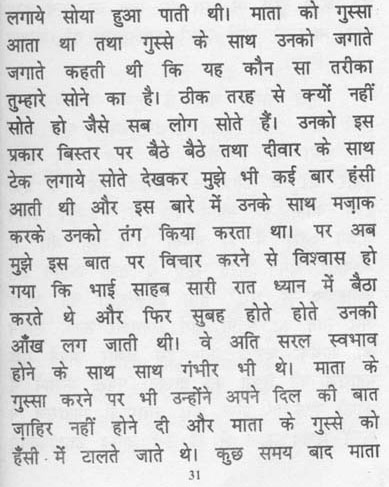 लगाये सोया हुआ पाती थी। माता को गुस्सा
आता था तथा गुस्से के साथ उनको जगाते
जगाते कहती थी कि यह कौन सा तरीका
तुम्हारे सोने का है। ठीक तरह से क्यों नहीं
सोते हो जैसे सब लोग सोते हैं। उनको इस
प्रकार बिस्तर पर बैठे बैठे तथा दीवार के साथ
टेक लगाये सोते देखकर मुझे भी कई बार हंसी
आती थी और इस बारे में उनके साथ मज़ाक
करके उनको तंग किया करता था। पर अब
मुझे इस बात पर विचार करने से विश्वास हो
गया कि भाई साहब सारी रात ध्यान में बैठा
करते थे और फिर सुबह होते होते उनकी
आँख लग जाती थी। वे अति सरल स्वभाव
होने के साथ साथ गंभीर भी थे। माता के
गुस्सा करने पर भी उन्होंने अपने दिल की बात
ज़ाहिर नहीं होने दी और माता के गुस्से को
हँसी में टालते जाते थे। कुछ समय बाद माता
31